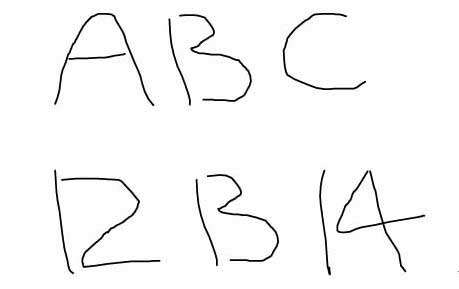 A B C
12 13 14